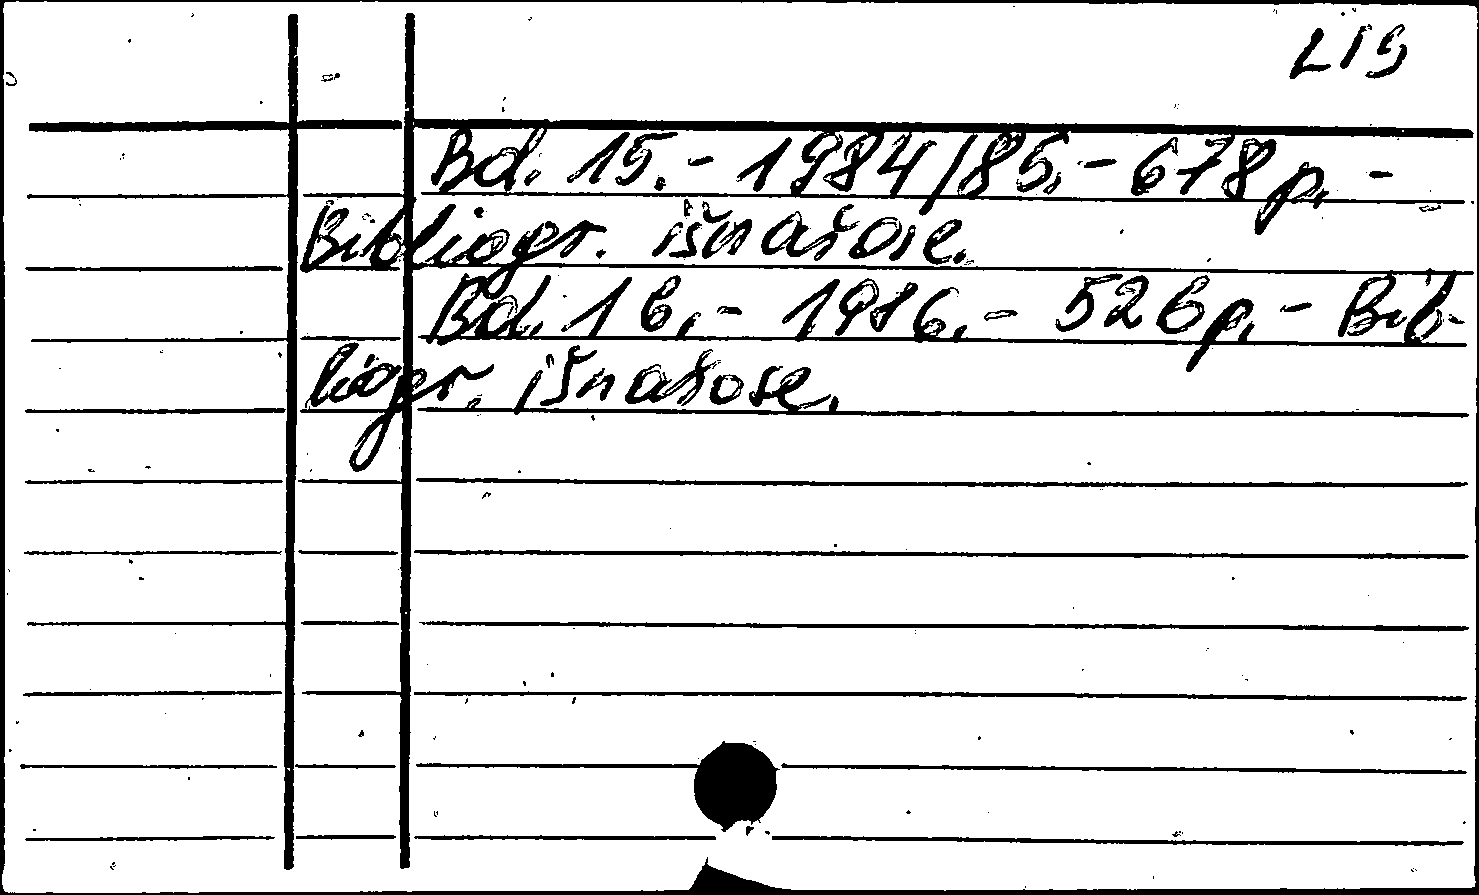 L19
Bd. 15.- 1984/85.- 678 p. -
Bibliogr. išnašose.
Bd. 16.- 1986.- 526 p.- Bib-
liogr. išnašose.